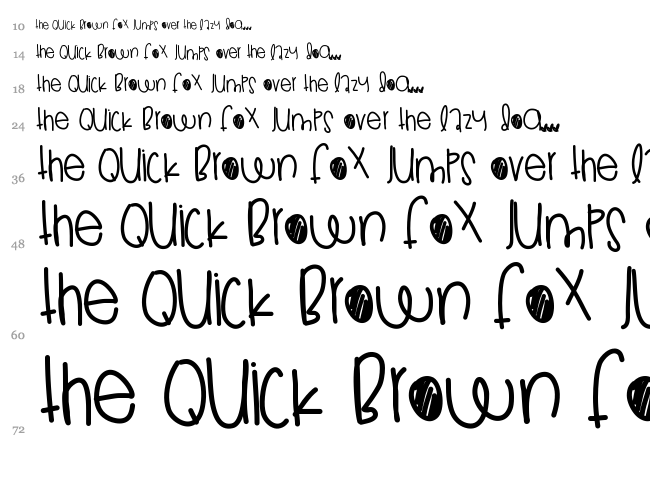 10 the QUick Brown fox JUmps over the lazy dog
14 the QUick Brown fox JUmps over the lazy dog
18 the QUick Brown fox JUmps over the lazy dog
24 the QUick Brown fox JUmps over the lazy dog
36 the QUick Brown fox JUmps over the l
48 the QUick Brown fox JUmps
60 the QUick Brown fox J
72 the QUick Brown fo